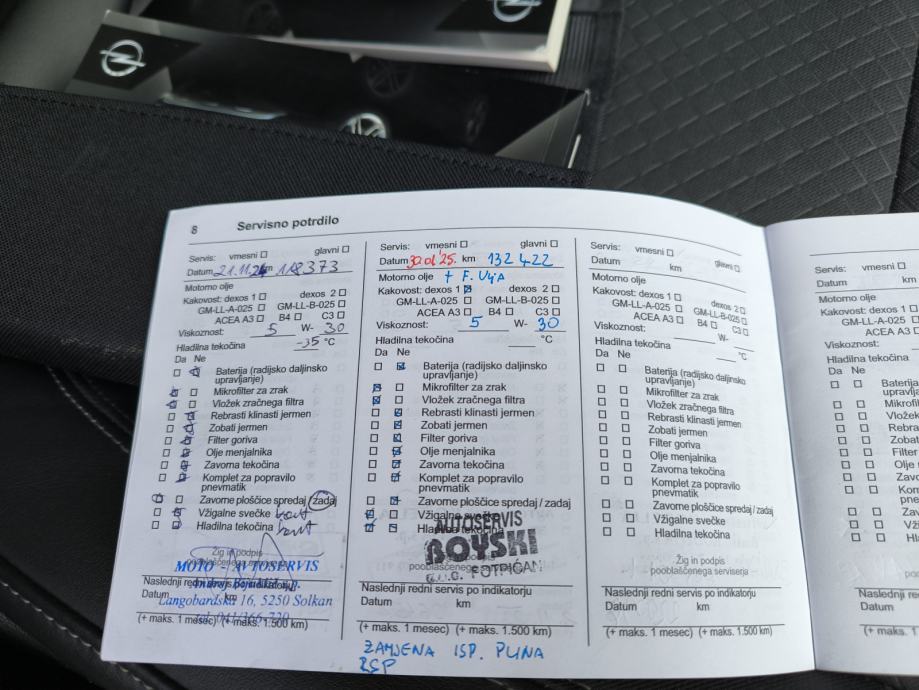 8 Servisno potrdilo
Servis: vmesni glavni
Datum 21.11.24 km 118373
Motorno olje
Kakovost: dexos 1 dexos 2
GM-LL-A-025 GM-LL-B-025
ACEA A3 B4 C3
Viskoznost: 5 W- 30
Hladilna tekočina -35 °C
Da Ne
Baterija (radijsko daljinsko
upravljanje)
Mikrofilter za zrak
Vložek zračnega filtra
Rebrasti klinasti jermen
Zobati jermen
Filter goriva
Olje menjalnika
Zavorna tekočina
Komplet za popravilo
pnevmatik
Zavorne ploščice spredaj / zadaj
Vžigalne svečke
Hladilna tekočina
Žig in podpis
MOTO - AVTOSERVIS
Naslednji redni servis po indikatorju
Datum km
Langobardska 16, 5250 Solkan
(+ maks. 1 mesec) (+ maks. 1.500 km)
Servis: vmesni glavni
Datum 30.01.25. km 132 422
Motorno olje + F. ULJA
Kakovost: dexos 1 dexos 2
GM-LL-A-025 GM-LL-B-025
ACEA A3 B4 C3
Viskoznost: 5 W- 30
Hladilna tekočina °C
Da Ne
Baterija (radijsko daljinsko
upravljanje)
Mikrofilter za zrak
Vložek zračnega filtra
Rebrasti klinasti jermen
Zobati jermen
Filter goriva
Olje menjalnika
Zavorna tekočina
Komplet za popravilo
pnevmatik
Zavorne ploščice spredaj / zadaj
Vžigalne svečke
Hladilna tekočina
AUTOSERVIS
BOYSKI
pooblaščenega serviserja
Naslednji redni servis po indikatorju
Datum km
(+ maks. 1 mesec) (+ maks. 1.500 km)
ZAMJENA ISP. PLINA
Servis: vmesni glavni
Datum km
Motorno olje
Kakovost: dexos 1 dexos 2
GM-LL-A-025 GM-LL-B-025
ACEA A3 B4 C3
Viskoznost: W-
Hladilna tekočina °C
Da Ne
Baterija (radijsko daljinsko
upravljanje)
Mikrofilter za zrak
Vložek zračnega filtra
Rebrasti klinasti jermen
Zobati jermen
Filter goriva
Olje menjalnika
Zavorna tekočina
Komplet za popravilo
pnevmatik
Zavorne ploščice spredaj / zadaj
Vžigalne svečke
Hladilna tekočina
Žig in podpis
pooblaščenega serviserja
Naslednji redni servis po indikatorju
Datum km
(+ maks. 1 mesec) (+ maks. 1.500 km)
Servis: vmesni
Datum
Motorno olje
Kakovost: dexos 1
GM-LL-A-025
ACEA A3
Viskoznost:
Hladilna tekočina
Da Ne
Baterija
Filter
Naslednji
Datum
(+ maks. 1 mesec)